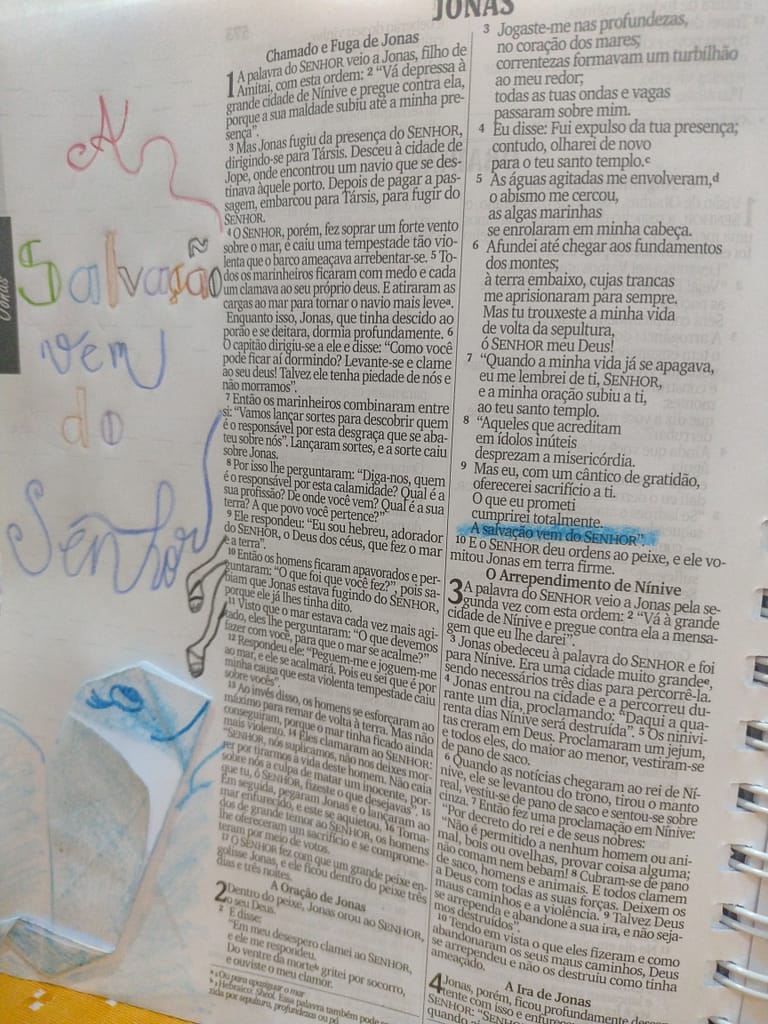 JONAS
Jonas
A
Salvação
vem
do
Senhor
Chamado e Fuga de Jonas
1 A palavra do SENHOR veio a Jonas, filho de
Amitai, com esta ordem: 2 “Vá depressa à
grande cidade de Nínive e pregue contra ela,
porque a sua maldade subiu até a minha pre-
sença”.
3 Mas Jonas fugiu da presença do SENHOR,
dirigindo-se para Társis. Desceu à cidade de
Jope, onde encontrou um navio que se des-
tinava àquele porto. Depois de pagar a pas-
sagem, embarcou para Társis, para fugir do
SENHOR.
4 O SENHOR, porém, fez soprar um forte vento
sobre o mar, e caiu uma tempestade tão vio-
lenta que o barco ameaçava arrebentar-se. 5 To-
dos os marinheiros ficaram com medo e cada
um clamava ao seu próprio deus. E atiraram as
cargas ao mar para tornar o navio mais leveª.
Enquanto isso, Jonas, que tinha descido ao
porão e se deitara, dormia profundamente. 6
O capitão dirigiu-se a ele e disse: “Como você
pode ficar aí dormindo? Levante-se e clame
ao seu deus! Talvez ele tenha piedade de nós e
não morramos”.
7 Então os marinheiros combinaram entre
si: “Vamos lançar sortes para descobrir quem
é o responsável por esta desgraça que se aba-
teu sobre nós”. Lançaram sortes, e a sorte caiu
sobre Jonas.
8 Por isso lhe perguntaram: “Diga-nos, quem
é o responsável por esta calamidade? Qual é a
sua profissão? De onde você vem? Qual é a sua
terra? A que povo você pertence?”
9 Ele respondeu: “Eu sou hebreu, adorador
do SENHOR, o Deus dos céus, que fez o mar
e a terra”.
10 Então os homens ficaram apavorados e per-
guntaram: “O que foi que você fez?”, pois sa-
biam que Jonas estava fugindo do SENHOR,
porque ele já lhes tinha dito.
11 Visto que o mar estava cada vez mais agi-
tado, eles lhe perguntaram: “O que devemos
fazer com você, para que o mar se acalme?”
12 Respondeu ele: “Peguem-me e joguem-me
ao mar, e ele se acalmará. Pois eu sei que é por
minha causa que esta violenta tempestade caiu
sobre vocês”.
13 Ao invés disso, os homens se esforçaram ao
máximo para remar de volta à terra. Mas não
conseguiram, porque o mar tinha ficado ainda
mais violento. 14 Eles clamaram ao SENHOR:
“SENHOR, nós suplicamos, não nos deixes mor-
rer por tirarmos a vida deste homem. Não caia
sobre nós a culpa de matar um inocente, por-
que tu, ó SENHOR, fizeste o que desejavas”. 15
Em seguida, pegaram Jonas e o lançaram ao
mar enfurecido, e este se aquietou. 16 Toma-
dos de grande temor ao SENHOR, os homens
lhe ofereceram um sacrifício e se comprome-
teram por meio de votos.
17 O SENHOR fez com que um grande peixe en-
golisse Jonas, e ele ficou dentro do peixe três
dias e três noites.
A Oração de Jonas
2 Dentro do peixe, Jonas orou ao SENHOR,
o seu Deus.
2 E disse:
“Em meu desespero clamei ao SENHOR,
e ele me respondeu.
Do ventre da morteᵇ gritei por socorro,
e ouviste o meu clamor.
ª Ou para apaziguar o mar
ᵇ Hebraico: Sheol. Essa palavra também pode
zida por sepultura, profundezas ou pó
3 Jogaste-me nas profundezas,
no coração dos mares;
correntezas formavam um turbilhão
ao meu redor;
todas as tuas ondas e vagas
passaram sobre mim.
4 Eu disse: Fui expulso da tua presença;
contudo, olharei de novo
para o teu santo templo.ᶜ
5 As águas agitadas me envolveram,ᵈ
o abismo me cercou,
as algas marinhas
se enrolaram em minha cabeça.
6 Afundei até chegar aos fundamentos
dos montes;
à terra embaixo, cujas trancas
me aprisionaram para sempre.
Mas tu trouxeste a minha vida
de volta da sepultura,
ó SENHOR meu Deus!
7 “Quando a minha vida já se apagava,
eu me lembrei de ti, SENHOR,
e a minha oração subiu a ti,
ao teu santo templo.
8 “Aqueles que acreditam
em ídolos inúteis
desprezam a misericórdia.
9 Mas eu, com um cântico de gratidão,
oferecerei sacrifício a ti.
O que eu prometi
cumprirei totalmente.
A salvação vem do SENHOR”.
10 E o SENHOR deu ordens ao peixe, e ele vo-
mitou Jonas em terra firme.
O Arrependimento de Nínive
3 A palavra do SENHOR veio a Jonas pela se-
gunda vez com esta ordem: 2 “Vá à grande
cidade de Nínive e pregue contra ela a mensa-
gem que eu lhe darei”.
3 Jonas obedeceu à palavra do SENHOR e foi
para Nínive. Era uma cidade muito grandeᵉ,
sendo necessários três dias para percorrê-la.
4 Jonas entrou na cidade e a percorreu du-
rante um dia, proclamando: “Daqui a qua-
renta dias Nínive será destruída”. 5 Os ninivi-
tas creram em Deus. Proclamaram um jejum,
e todos eles, do maior ao menor, vestiram-se
de pano de saco.
6 Quando as notícias chegaram ao rei de Ní-
nive, ele se levantou do trono, tirou o manto
real, vestiu-se de pano de saco e sentou-se sobre
cinza. 7 Então fez uma proclamação em Nínive:
“Por decreto do rei e de seus nobres:
“Não é permitido a nenhum homem ou ani-
mal, bois ou ovelhas, provar coisa alguma;
não comam nem bebam! 8 Cubram-se de pano
de saco, homens e animais. E todos clamem
a Deus com todas as suas forças. Deixem os
maus caminhos e a violência. 9 Talvez Deus
se arrependa e abandone a sua ira, e não seja-
mos destruídos”.
10 Tendo em vista o que eles fizeram e como
abandonaram os seus maus caminhos, Deus
se arrependeu e não os destruiu como tinha
ameaçado.
A Ira de Jonas
4 Jonas, porém, ficou profundamente
tente com isso e enfureceu
SENHOR: “SENHOR
quando